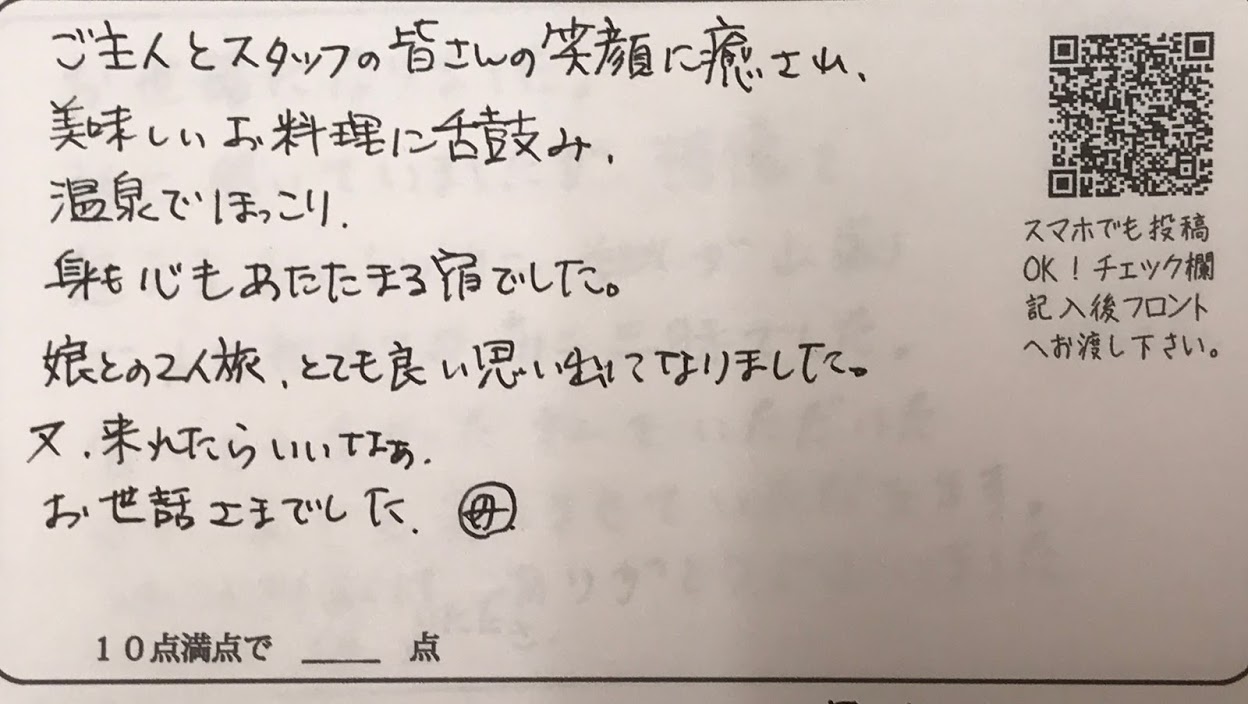 ご主人とスタッフの皆さんの笑顔に癒され、
美味しいお料理に舌鼓み、
温泉でほっこり、
身も心もあたたまる宿でした。
娘との2人旅、とても良い思い出になりました。
又、来れたらいいなぁ、
お世話さまでした、 ㊊
10点満点で ____ 点
スマホでも投稿
OK！チェック欄
記入後フロント
へお渡し下さい。